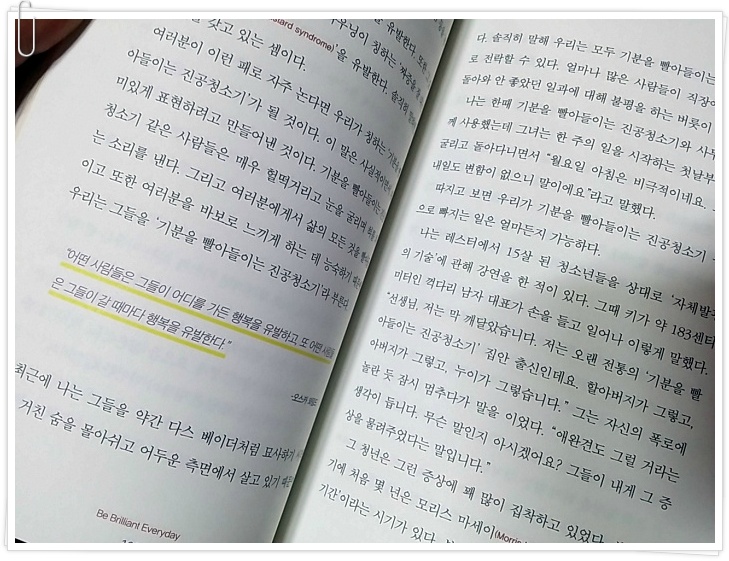 을 갖고 있는 셈이다.
여러분이 이런 패로 자주 논다면 우리가 칭하는 '기분을
아들이는 진공청소기'가 될 것이다. 이 말은 사실적이면서
미있게 표현하려고 만들어낸 것이다. 기분을 빨아들이는
청소기 같은 사람들은 매우 헐떡거리고 눈을 굴리며
는 소리를 낸다. 그리고 여러분에게서 삶의 모든 것을
이고 또한 여러분을 바보로 느끼게 하는 데 능숙하기
우리는 그들을 '기분을 빨아들이는 진공청소기'라 부른다.
“어떤 사람들은 그들이 어디를 가든 행복을 유발하고, 또 어떤 사람들
은 그들이 갈 때마다 행복을 유발한다.”
-오스카 와일드
최근에 나는 그들을 약간 다스 베이더처럼 묘사하기
거친 숨을 몰아쉬고 어두운 측면에서 살고 있기 때문
Be Brilliant Everyday
다. 솔직히 말해 우리는 모두 기분을 빨아들이는
로 전락할 수 있다. 얼마나 많은 사람들이 직장에
돌아와 안 좋았던 일과에 대해 불평을 하는 버릇이
나는 한때 기분을 빨아들이는 진공청소기와 사무
께 사용했는데 그녀는 한 주의 일을 시작하는 첫날부
굴리고 돌아다니면서 “월요일 아침은 비극적이네요.
내일도 변함이 없으니 말이에요”라고 말했다.
따지고 보면 우리가 기분을 빨아들이는 진공청소기
으로 빠지는 일은 얼마든지 가능하다.
나는 레스터에서 15살 된 청소년들을 상대로 '자체발
의 기술'에 관해 강연을 한 적이 있다. 그때 키가 약 183센티
미터인 꺽다리 남자 대표가 손을 들고 일어나 이렇게 말했다.
“선생님, 저는 막 깨달았습니다. 저는 오랜 전통의 '기분을 빨
아들이는 진공청소기' 집안 출신인데요. 할아버지가 그렇고,
아버지가 그렇고, 누이가 그렇습니다.” 그는 자신의 폭로에
놀란 듯 잠시 멈추다가 말을 이었다. “애완견도 그럴 거라는
생각이 듭니다. 무슨 말인지 아시겠어요? 그들이 내게 그 증
상을 물려주었다는 말입니다.”
그 청년은 그런 증상에 꽤 많이 집착하고 있었다.
기에 처음 몇 년은 모리스 마세이(Morris
기간'이라는 시기가 있다.